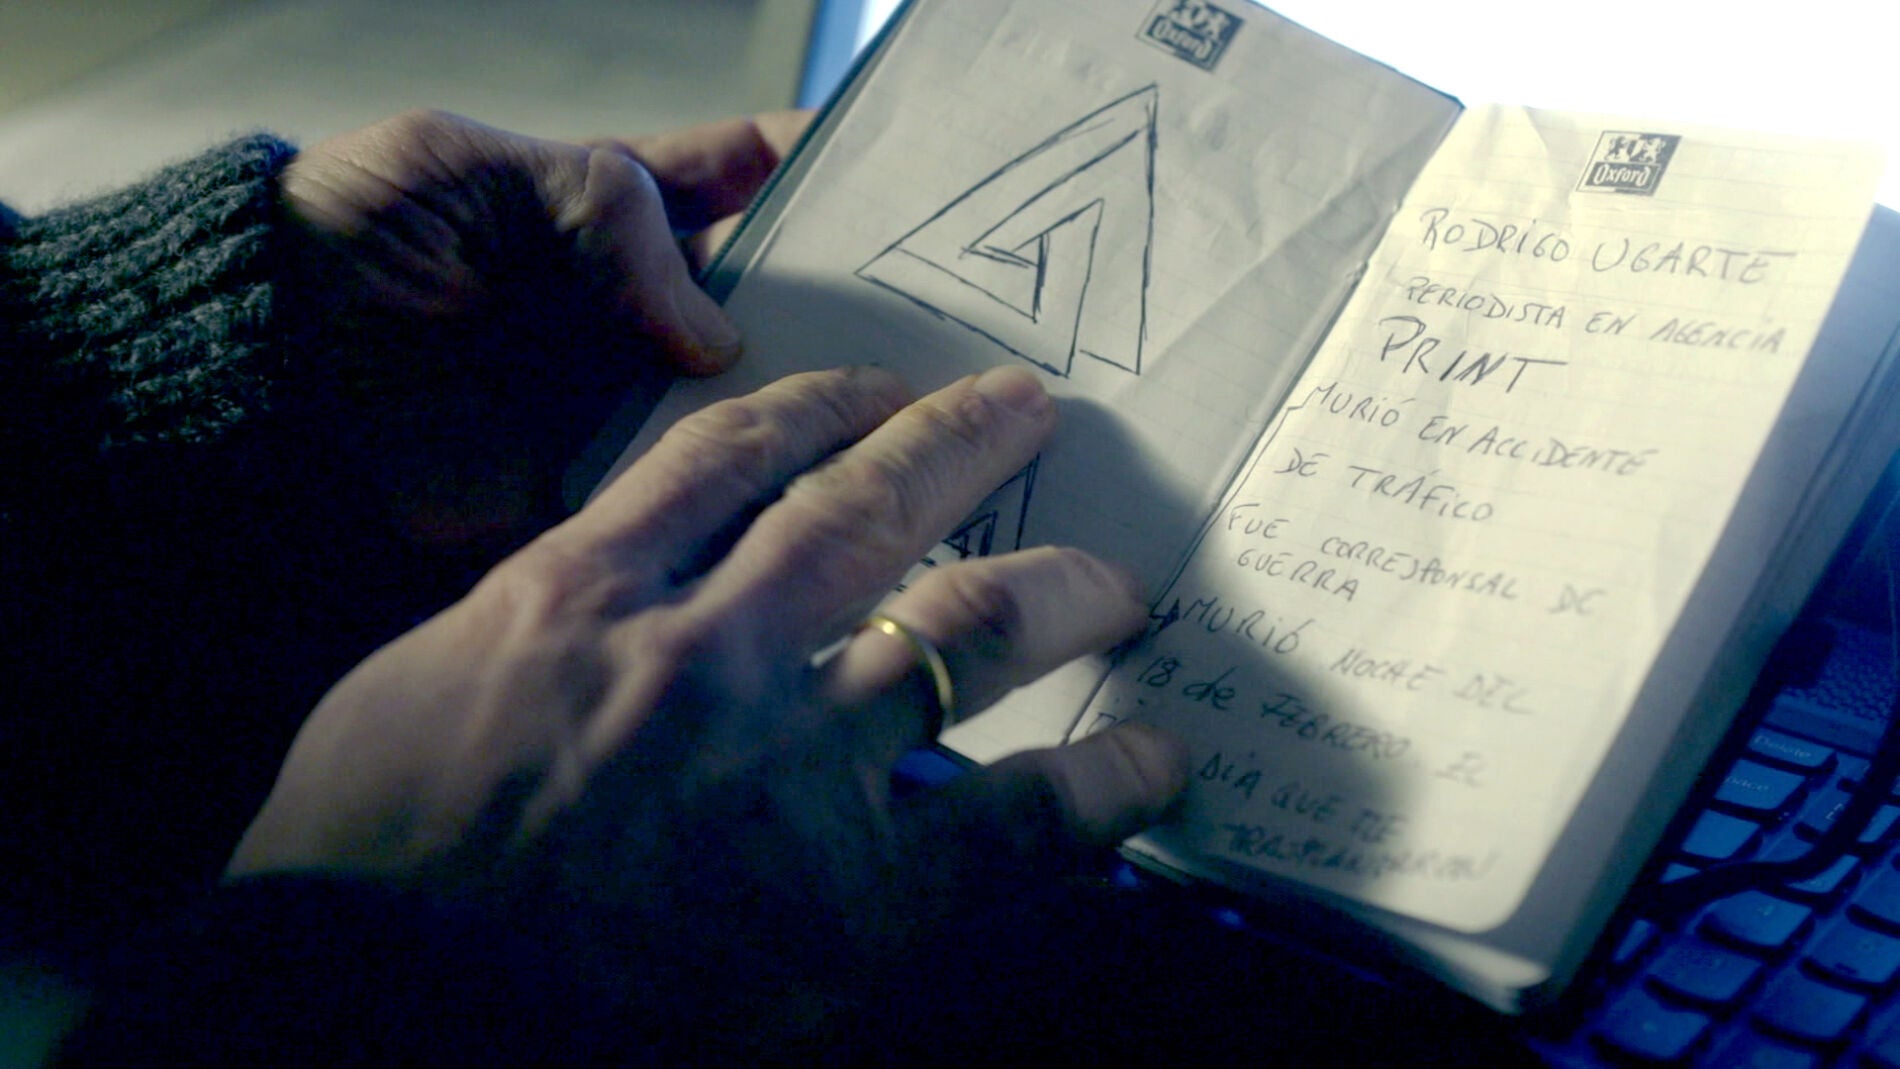 Oxford
Oxford
RODRIGO UGARTE
PERIODISTA EN AGENCIA
PRINT
MURIÓ EN ACCIDENTE
DE TRÁFICO
FUE CORRESPONSAL DE
GUERRA
MURIÓ NOCHE DEL
18 de FEBRERO. EL
DÍA QUE ME
TRASPLANTARON
Delete